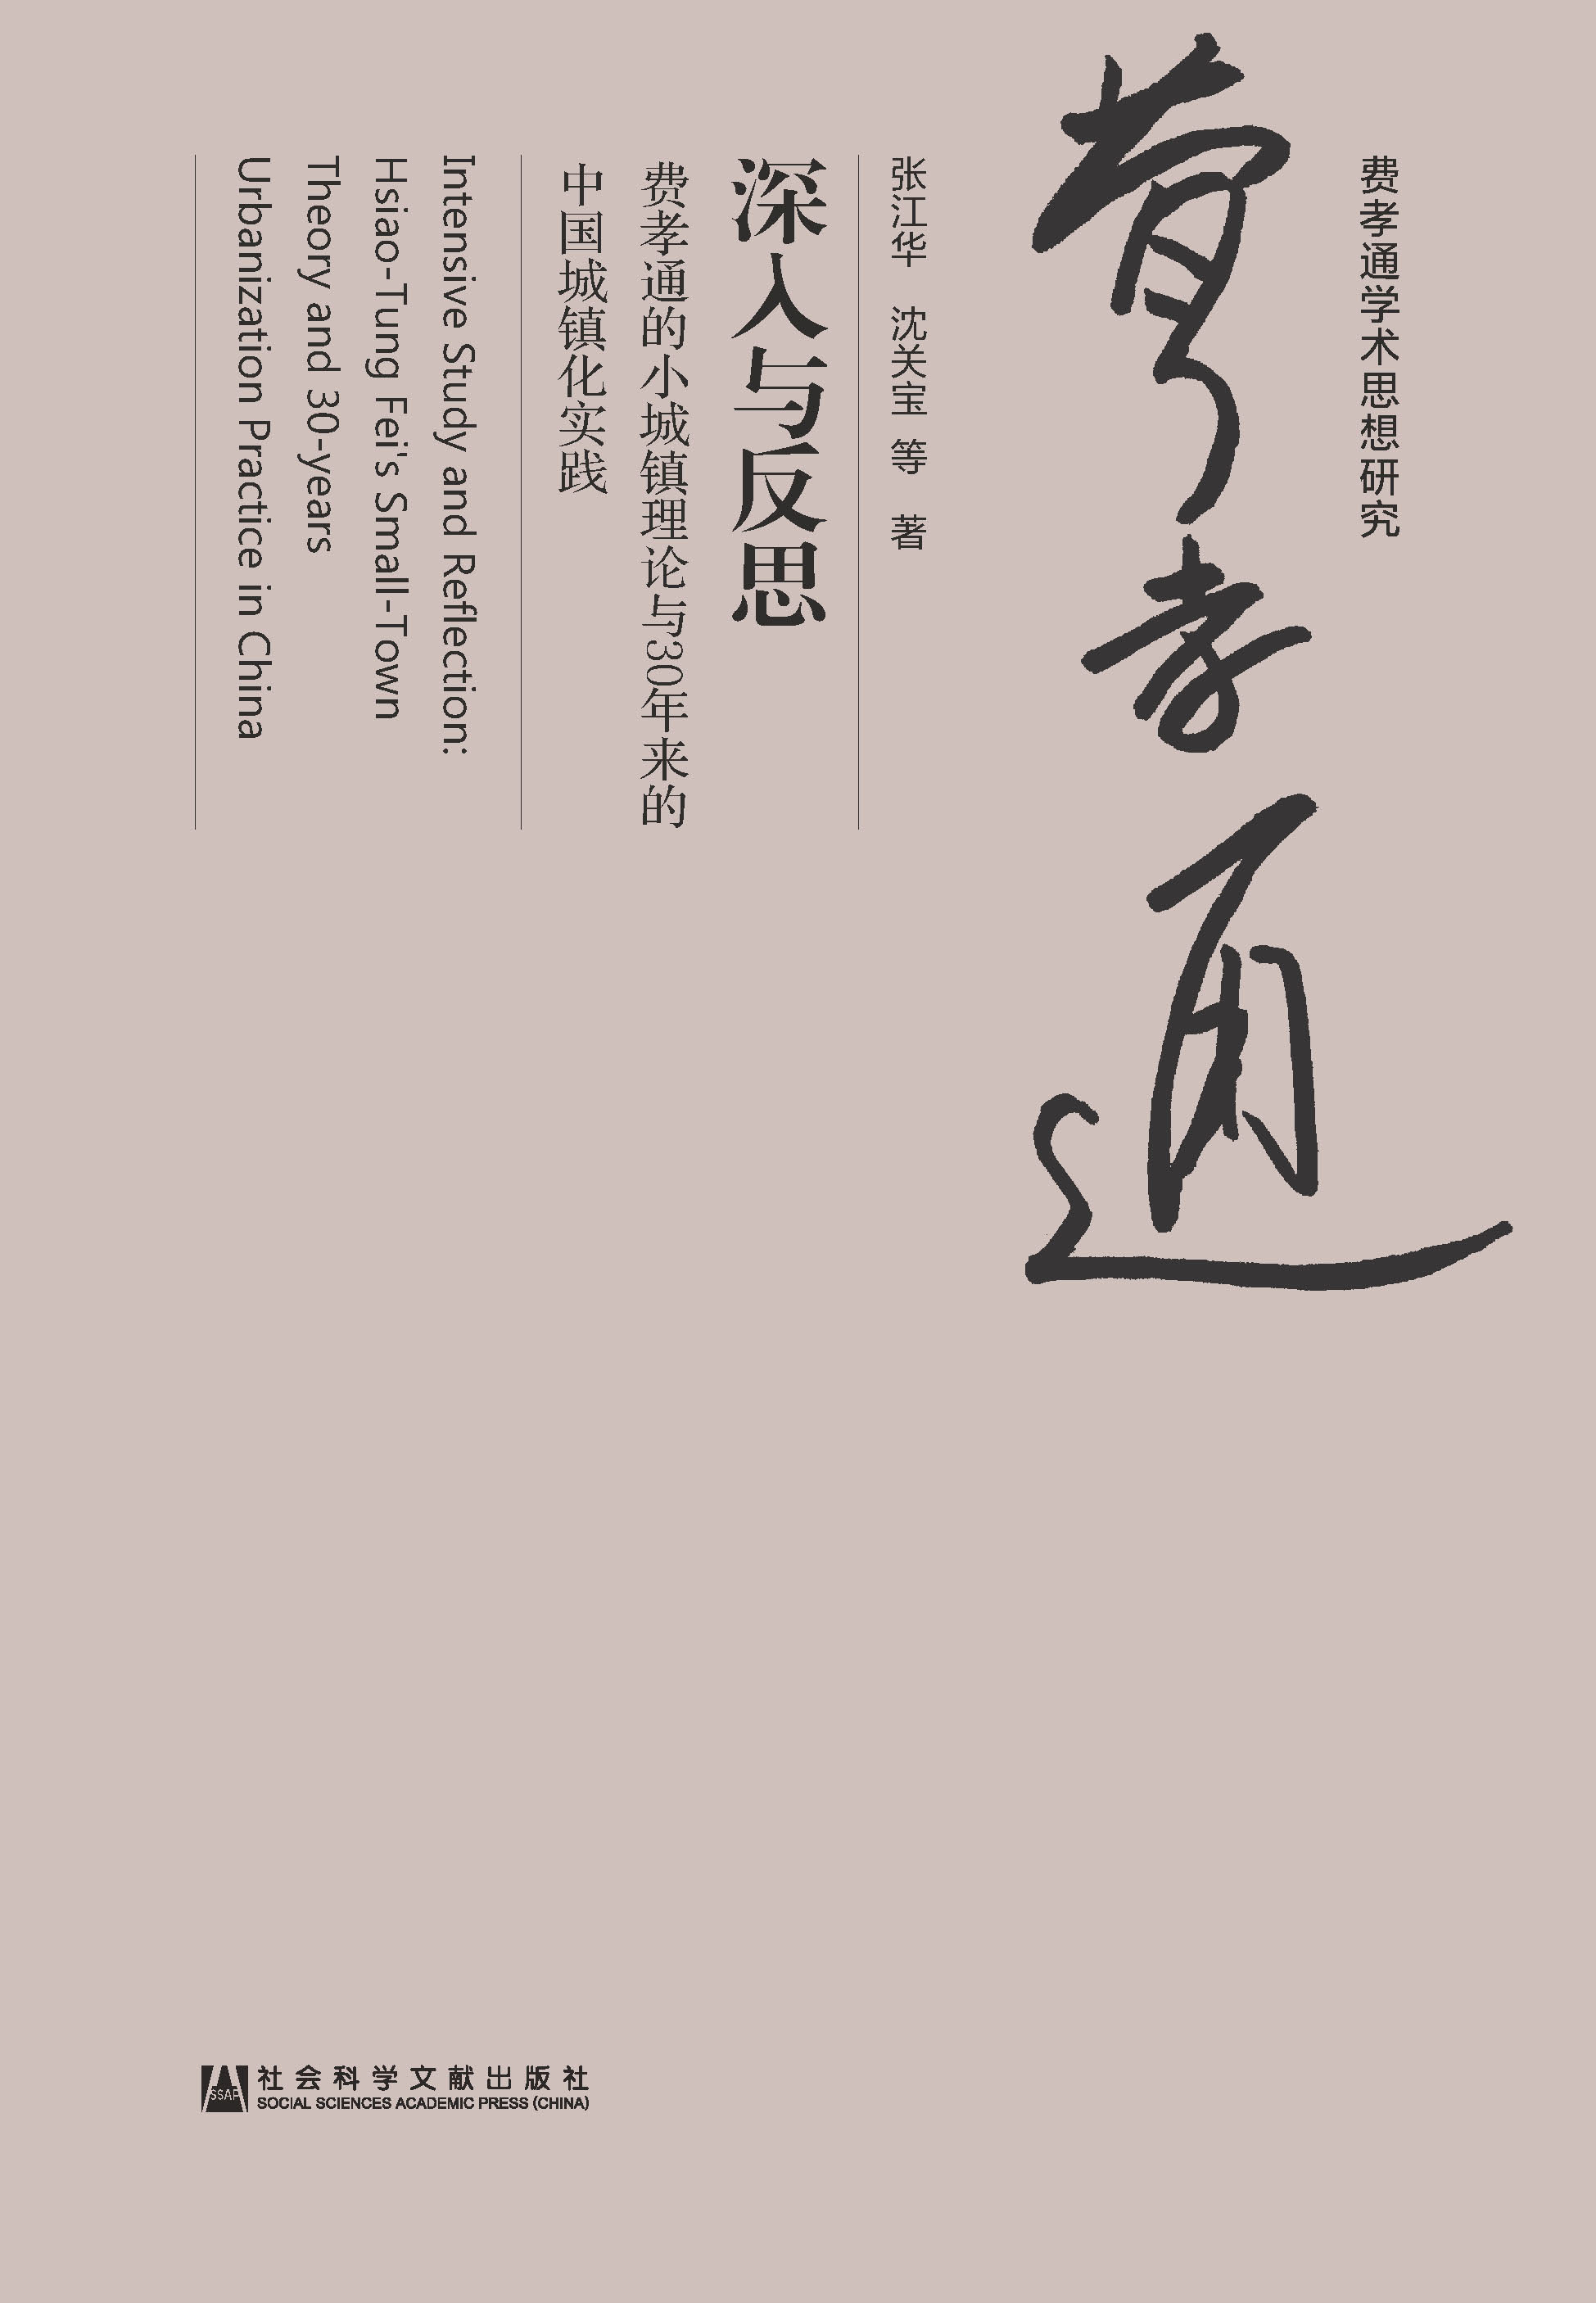 费孝通学术思想研究
费孝通
张江华 沈关宝 等 著
深入与反思
费孝通的小城镇理论与30年来的
中国城镇化实践
Intensive Study and Reflection:
Hsiao-Tung Fei's Small-Town
Theory and 30-years
Urbanization Practice in China
SSAP
社会科学文献出版社
SOCIAL SCIENCES ACADEMIC PRESS (CHINA)